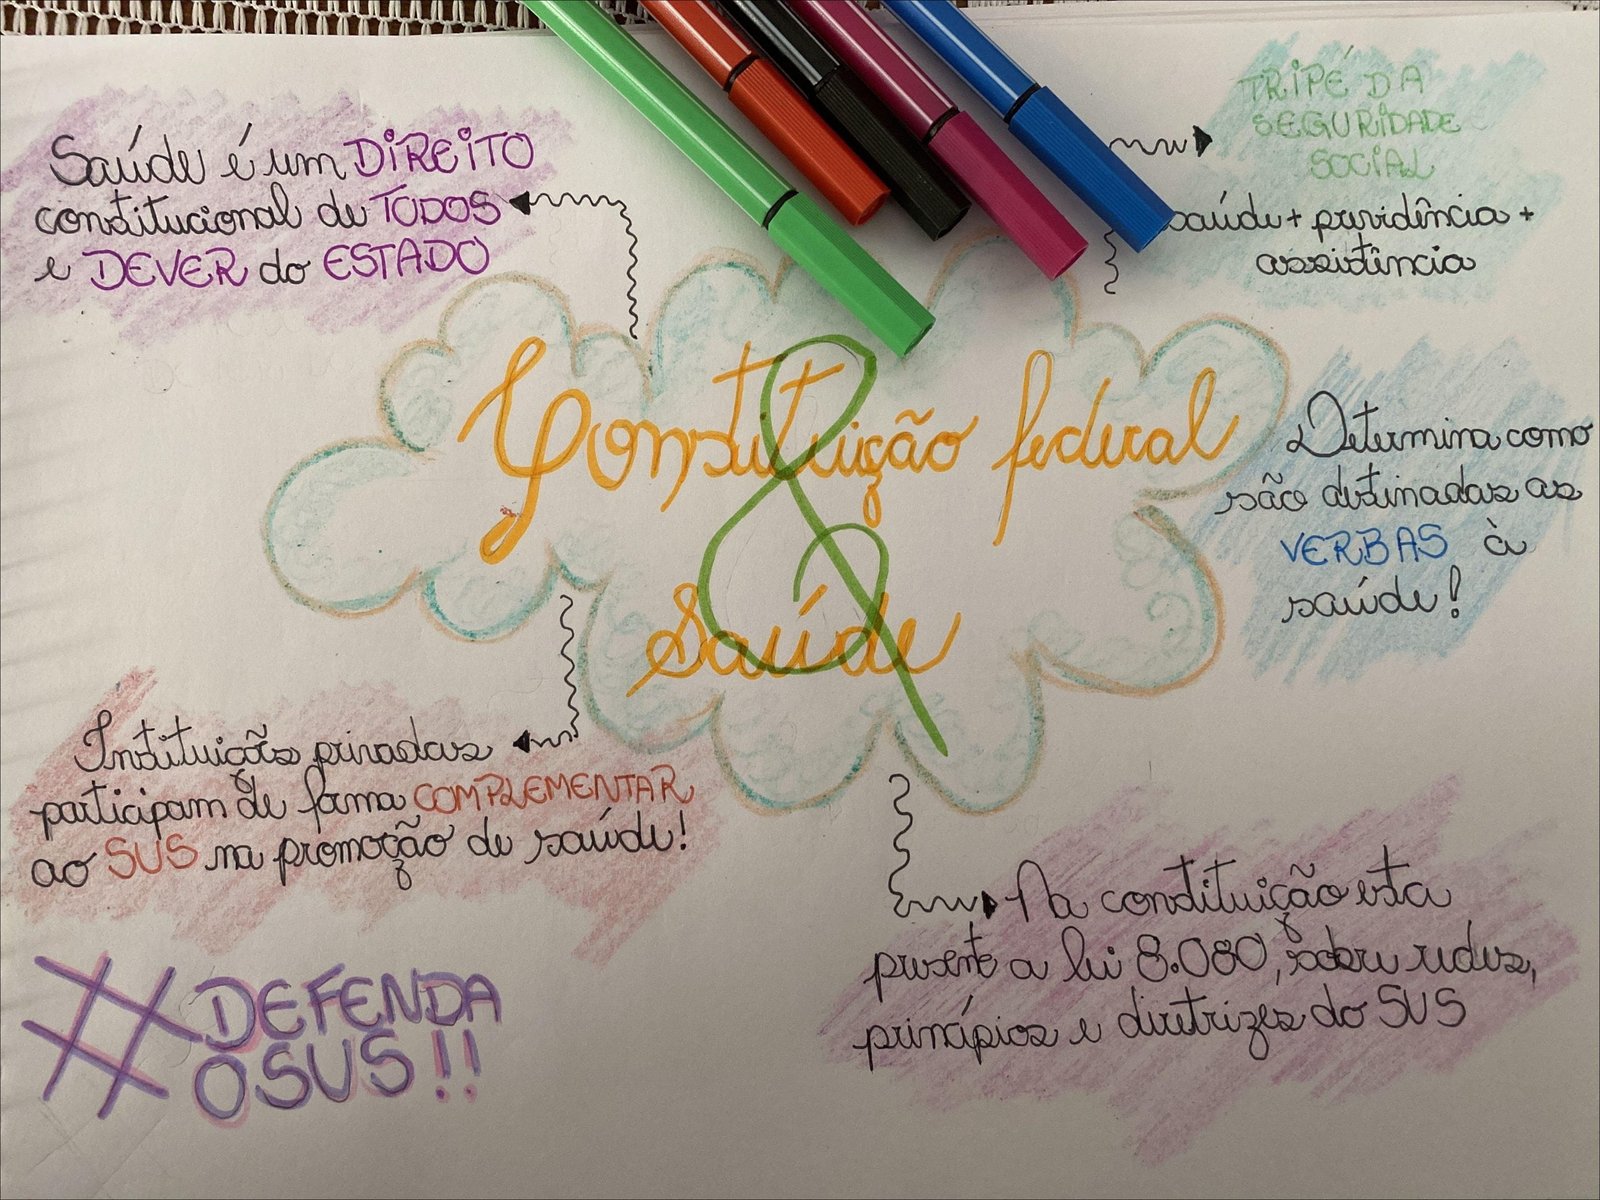 Saúde é um DIREITO
constitucional de TODOS
e DEVER do ESTADO
TRIPÉ DA
SEGURIDADE
SOCIAL
saúde + previdência +
assistência
Constituição federal
&
Saúde
Determina como
são destinadas as
VERBAS à
saúde!
Instituições privadas
participam de forma COMPLEMENTAR
ao SUS na promoção de saúde!
Na constituição esta
presente a lei 8.080, sobre redes,
princípios e diretrizes do SUS
# DEFENDA
O SUS!!